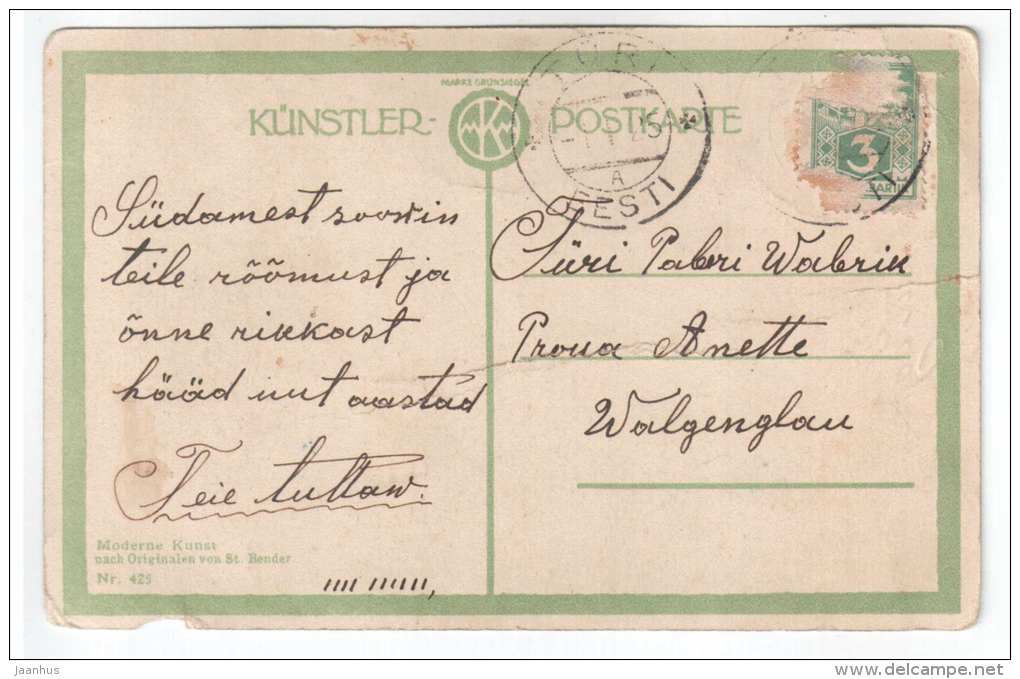 MARKE GRÜNSIEGEL
KÜNSTLER-
MKM
POSTKARTE
TÜRI
15
A
EESTI
3
Südamest soowin
teile rõõmust ja
õnne rikkast
hääd uut aastad
Teie tuttaw.
Türi Pabri Wabrik
Proua Anette
Walgenglau
Moderne Kunst
nach Originalen von St. Bender
Nr. 425
jaanhus
www.delcampe.net